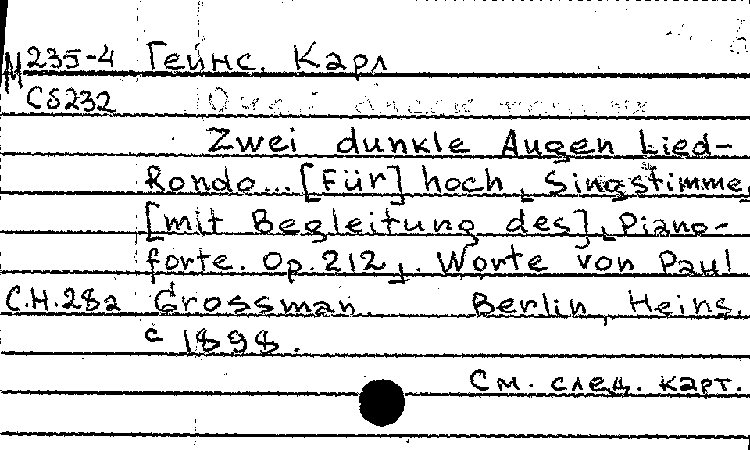 М 235-4 Гейнс. Карл
Сб232
Zwei dunkle Augen Lied-
Rondo... [Für] hoch, Singstimme
[mit Begleitung des], Piano-
forte. Op. 212,. Worte von Paul
С.Н.28а Grossman. Berlin, Heins.
c 1898.
См. след. карт.